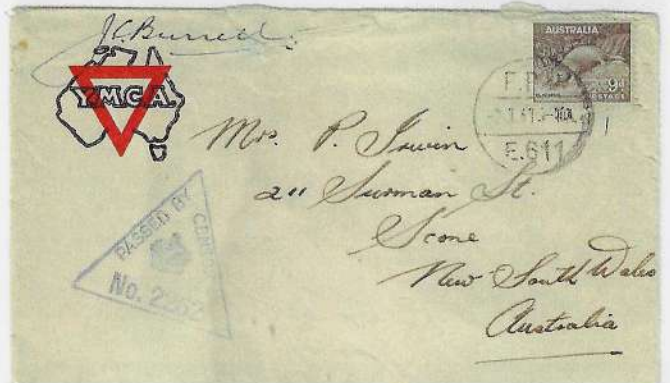 J.C. Burrell.
AUSTRALIA
9d
POSTAGE
Y.M.C.A.
F.P.O.
E.611
Mrs. P. Irwin
211 Surman St.
Scone
New South Wales
Australia
PASSED BY
No.